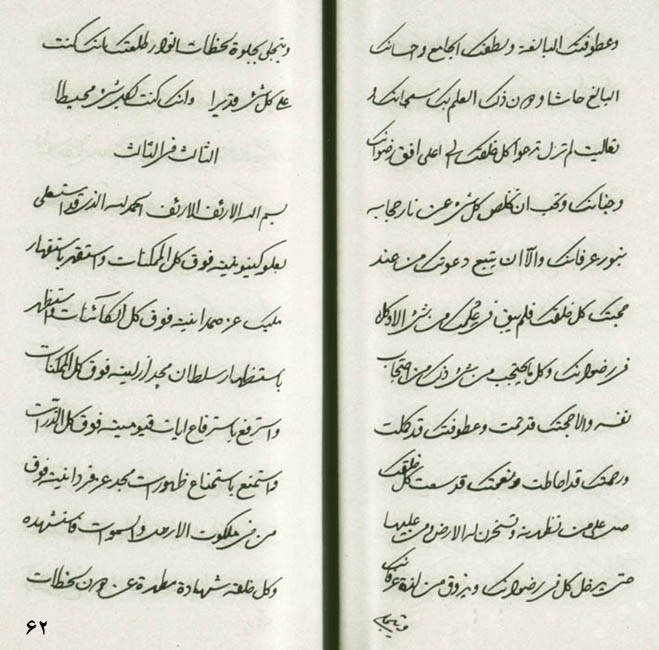 وعطوفتك البالغة ولطفتك الجامع وحسانك
البالغ حاشا ومن ذلك العلم بك سبحانك و
تعاليت لم تزل ترحوا كل خلقتك الى اعلى افق رضوانك
وجنانك وتحب ان تخلص كل شئ عن نار حجابه
بنور عرفانك والا ان يتبع دعوتك من عند
محبتك كل خلقك فلم يبق فى علمك من شئ الا وكل
فى رضوانك وكل ما يحتجب من شئ ذلك من احتجاب
نفسه والا حجتك قد تمت وعطوفتك قد كملت
ورحمتك قد احاطت ونعمتك قد سعت كل خلقك
صل على من تظهرنه وتسخرن له الارض ومن عليها
حتى يدخل كل فى رضوانك ويذوق من لذة عرفانك
ويتجلى
ويتجلى بجلوة لحظات انوار طلعتك انك كنت
على كل شئ قديرا وانك كنت بكل شئ محيطا
الثالث فى الثالث
بسم الله الارئف الارئف الحمد لله الذى قد استعلى
بعلو كينونيته فوق كل الممكنات واستقهر باستقهار
مليك عز صمدانيته فوق كل الكائنات واستظهر
باستظهار سلطان مجد ازليته فوق كل الممكنات
واسترفع باسترفاع ايات قيوميته فوق كل الذرات
واستمنع باستمناع ظهورات مجد عز فردانيته فوق
من فى ملكوت الارض والسموات فاستشهده
وكل خلقه شهادة مطهرة عن لحظات
۶۲